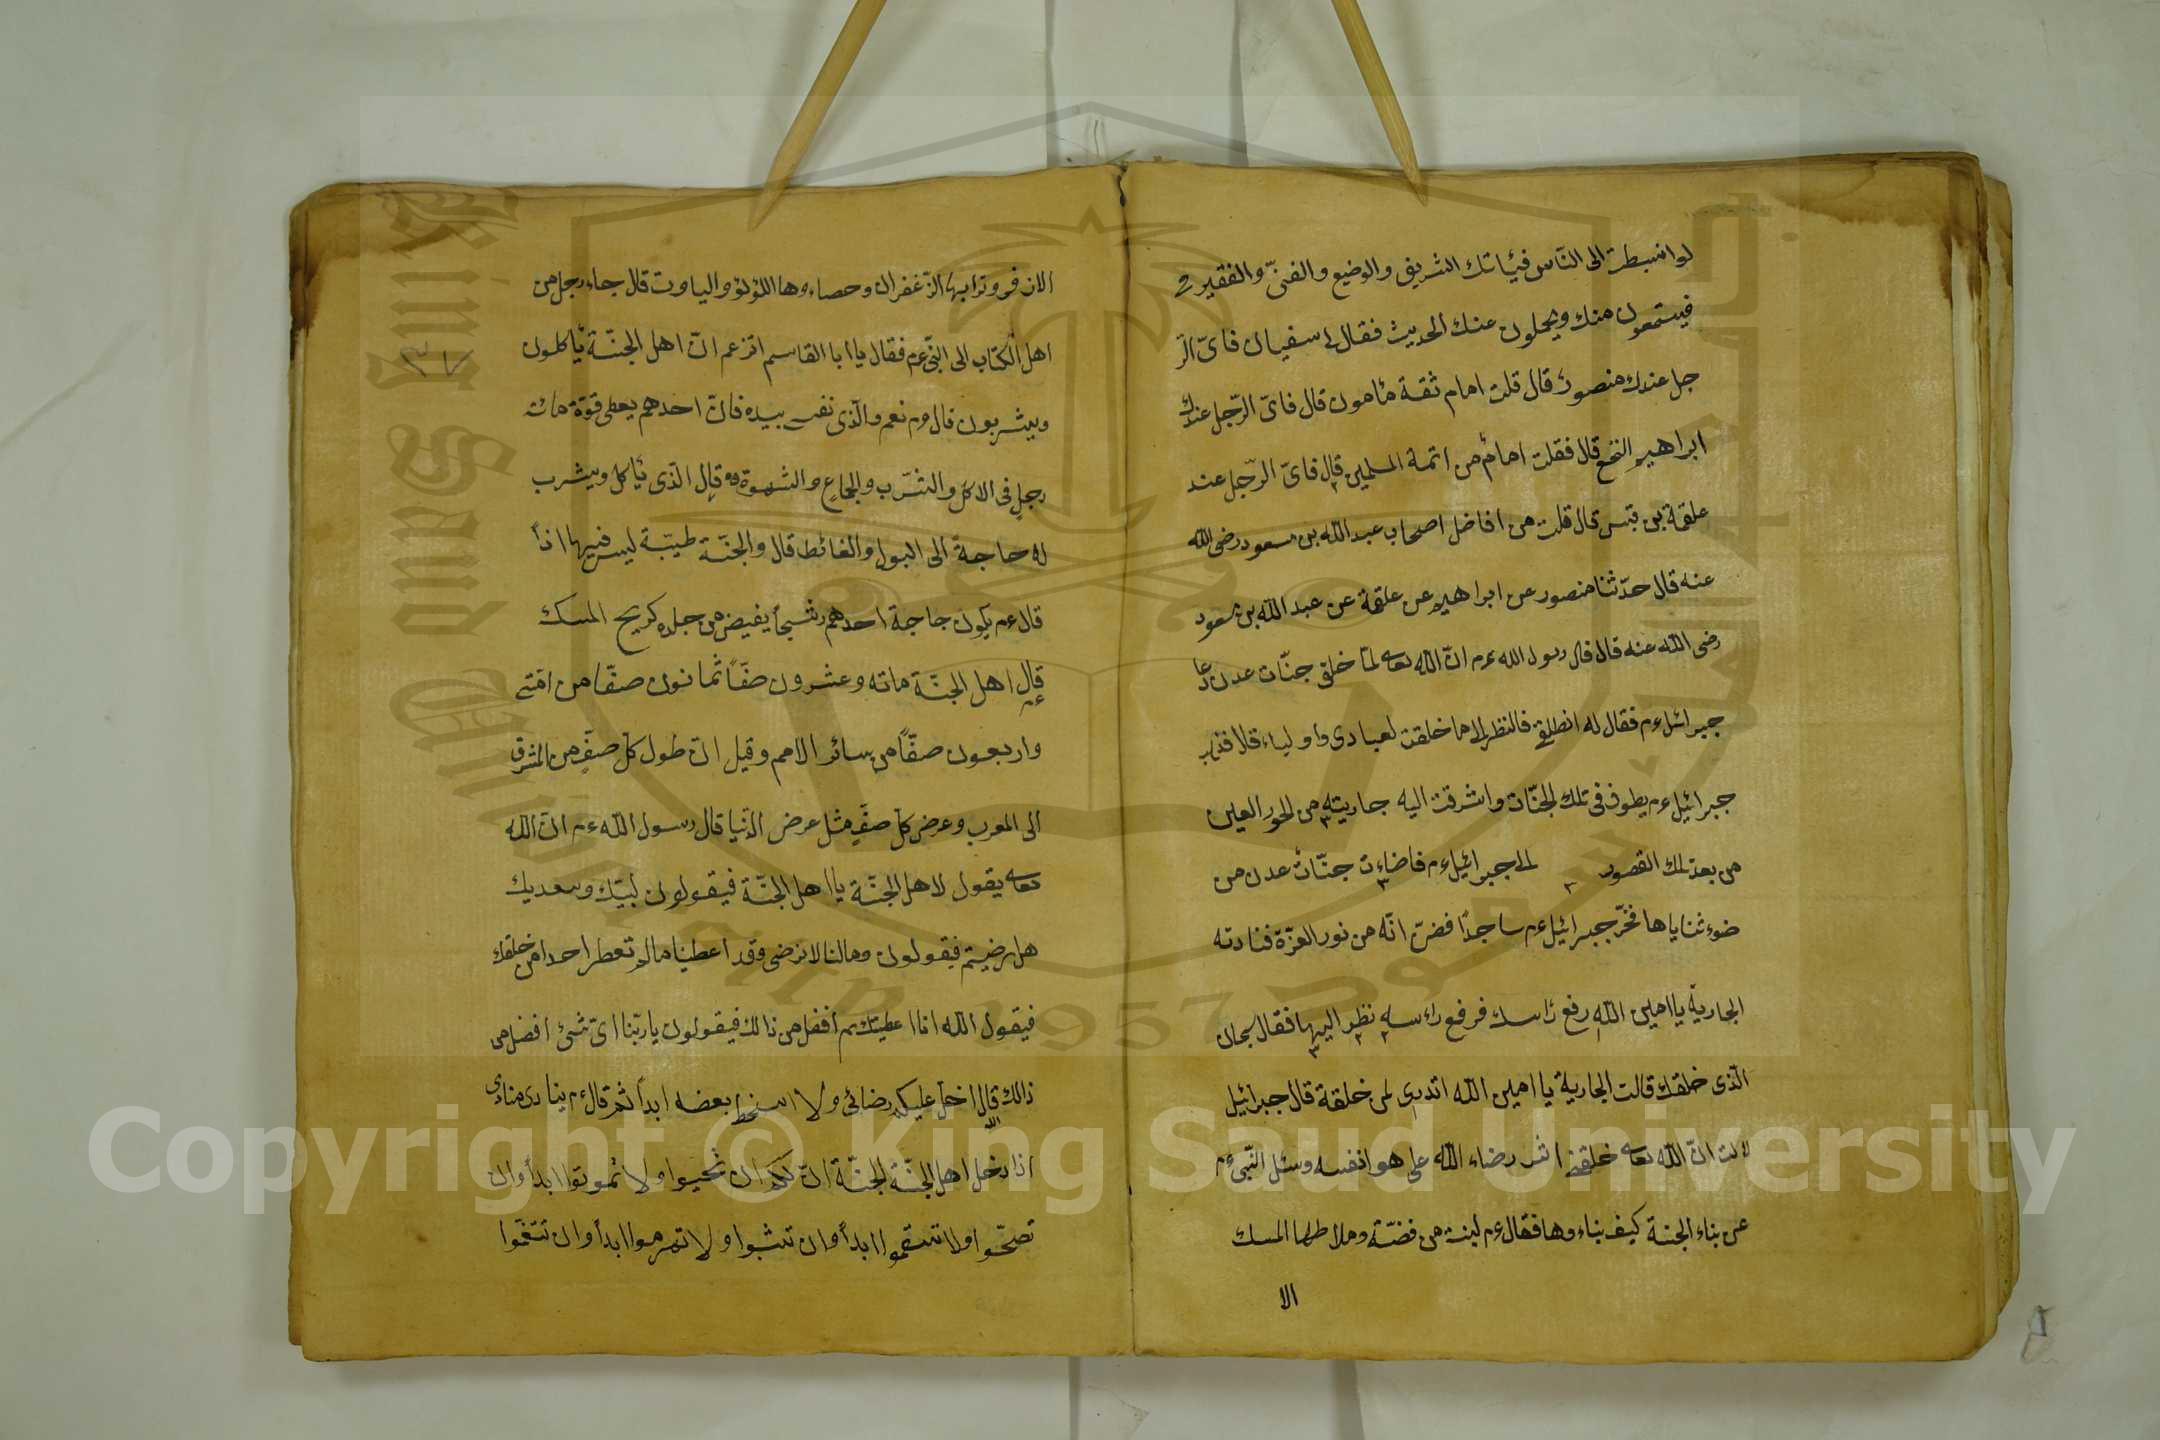 لو انبسطت الى النّاس فيئاتك الشريف والوضيع والغنىّ والفقير
فيستمعون منك ويحملون عنك الحديث فقال لى سفيان فاىّ الر
جل عندك منصور قال قلت امام ثقة مأمون قال فاىّ الرّجل عندك
ابراهيم النخعى قال فقلت امام من ائمة المسلمين قال فاىّ الرّجل عند
علقمة بن قيس قال قلت من افاضل اصحاب عبد الله بن مسعود رضى الله
عنه قال حدّثنا منصور عن ابراهيم عن علقمة عن عبد الله بن مسعود
رضى الله عنه قال قال رسول الله عم انّ الله تعا لمّا خلق جنّات عدن دعا
جبرائيل عم فقال له انطلق فالنظر الا ما خلقت لعبادى واوليائ قلا فذهب
جبرائيل عم يطوف فى تلك الجنّات واشرقت اليه جاريته من الحور العين
من بعد تلك القصور لملا جبرائيل عم فاضاءت جنّات عدن من
ضوء ثناياها فخّر جبرائيل عم ساجدًا فضنّ انّه من نور العزّة فنادته
الجارية يا امين الله رفع رأسك فرفع راءسه نظر اليها فقال سبحان
الّذى خلقك قالت الجارية يا امين الله اتدرى لمن خلقة قال جبرائيل
لا قالت انّ الله تعا خلقنى اثر رضاء الله على هوا نفسه وسئل النّبى عم
عن بناء الجنة كيف بناءوها فقال عم لبنة من فضّة وملاطها المسك
الا
الان فر وترابها الزّغفران وحصاءوها اللؤلؤ والياوت قال جاء رجل من
اهل الكتاب الى النّبى عم فقال يا ابا القاسم اتزعم انّ اهل الجنّة يأكلون
ويشربون قال عم نعم والّذى نفسى بيده فانّ احدهم يعطى قوّة مائة
رجل فى الاكل والشّرب والجماع والشهوة قال الّذى يأكل ويشرب
له حاجة الى البول والغائط قال والجنّة طيّبة ليس فيها اذاً
قال عم يكون حاجة احدهم رشحاً يفيض من جلده كريح المسك
قال عم اهل الجنّة مائه وعشرون صفّاً ثمانون صفّا من امّتى
واربعون صفّاً من سائر الامم وقيل انّ طول كلّ صفّ من المشرق
الى المعرب وعرض كلّ صفّ مثل عرض الدّنيا قال رسول الله عم انّ الله
تعا يقول لاهل الجنّة يا اهل الجنّة فيقولون لبيّك وسعديك
هل رضيتم فيقولون ومالنا لا نرضى وقد اعطينا مالم تعطى احدا من خلقك
فيقول الله انا اعطيتكم أفضل من ذالك فيقولون يا ربّنا اىّ شئ افضل من
ذالك قال الله احل عليكم رضائى ولا اسخط بعضه ابداً ثم قال عم ينادى منادى
اذا دخل اهل الجنّة الجنّة انّ لكم ان تحيوا ولا تموتوا ابداً وان
تصحّوا ولا تسقموا ابداً وان تشبوا ولا تهرموا ابداً وان تنعّموا
Copyright © King Saud University
1957